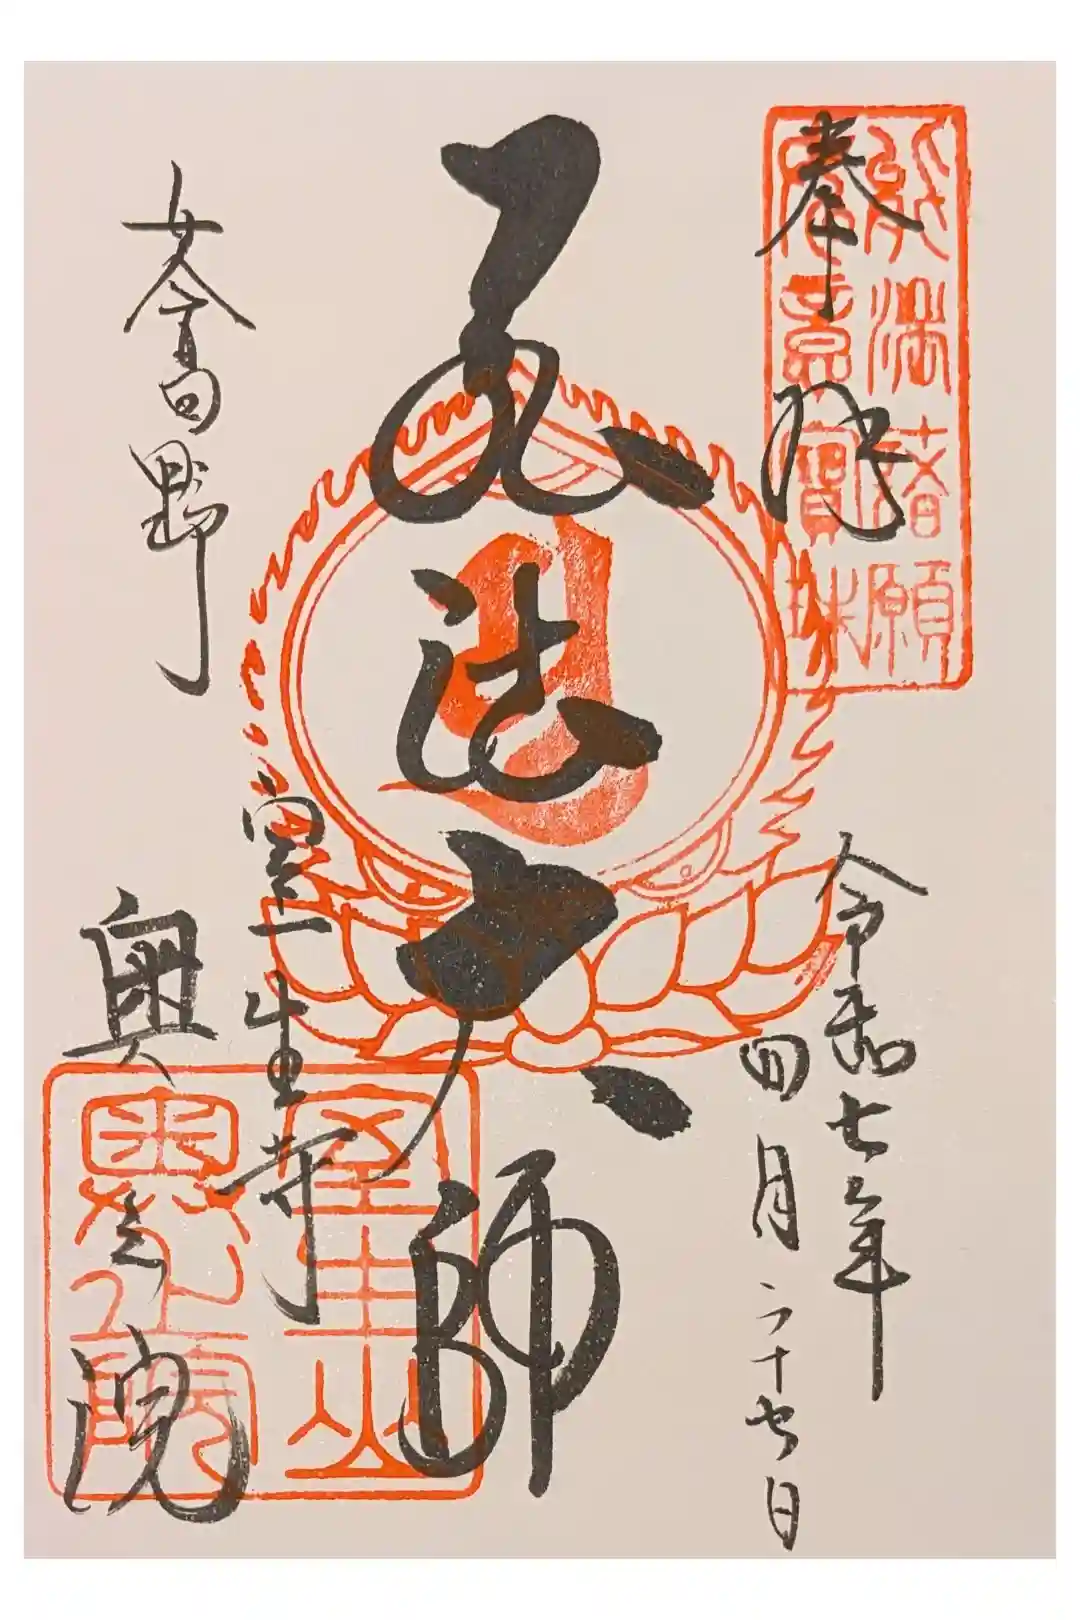 奉拝
能満諸願
意寶珠
令和七年
四月二十七日
弘法大師
室生寺
女人高野
奥之院
室生山
奥之院